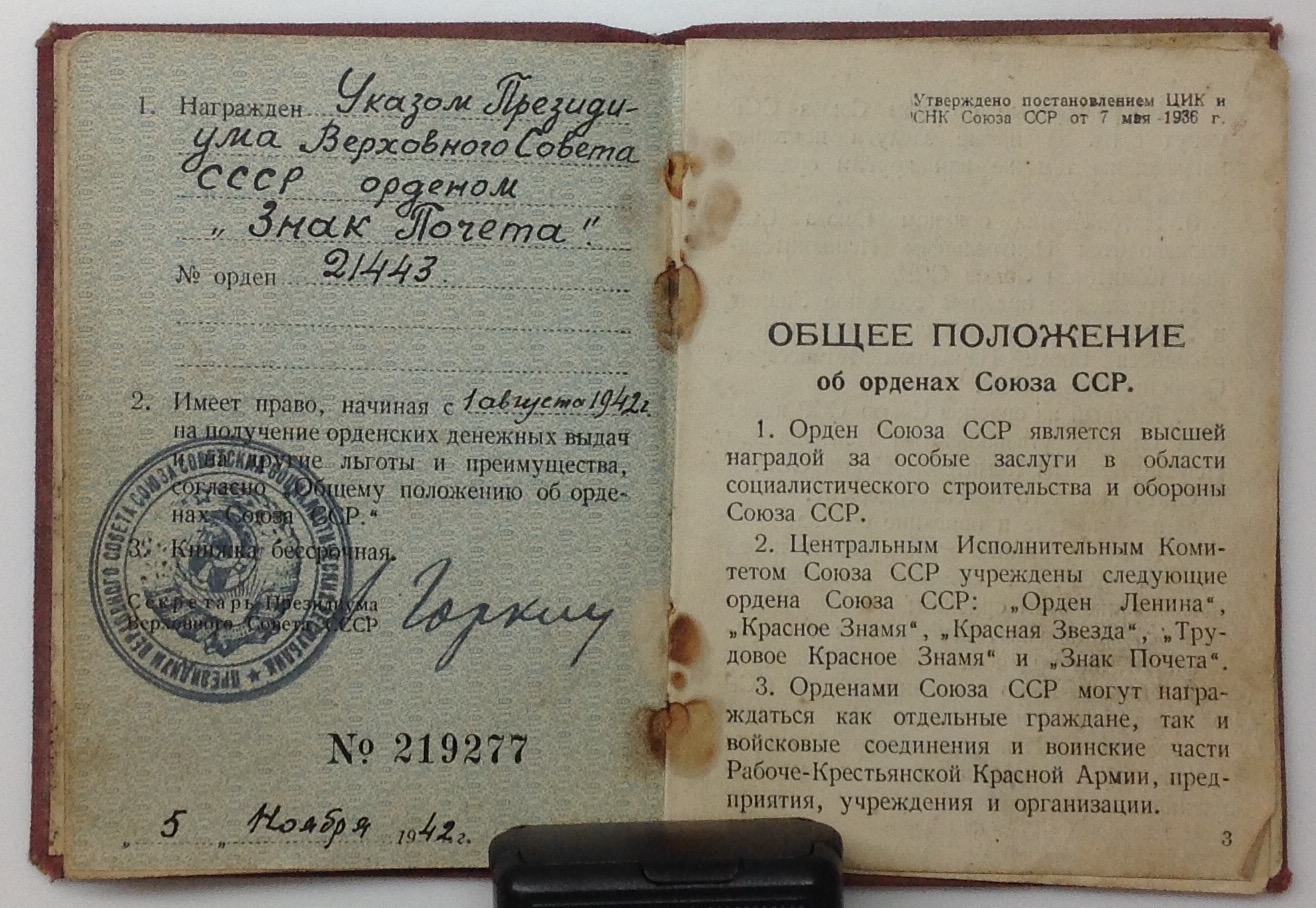 1. Награжден Указом Президи-
ума Верховного Совета
СССР орденом
„Знак Почета"
№ орден 21443
2. Имеет право, начиная с 1 августа 1942г.
на получение орденских денежных выдач
и на другие льготы и преимущества,
согласно „Общему положению об орде-
нах Союза ССР.“
3. Книжка бессрочная.
Секретарь Президиума
Верховного Совета СССР
Горкин
ПРЕЗИДИУМ ВЕРХОВНОГО СОВЕТА СОЮЗА СОВЕТСКИХ СОЦИАЛИСТИЧЕСКИХ РЕСПУБЛИК
№ 219277
„ 5 „ Ноября 1942 г.
Утверждено постановлением ЦИК и
СНК Союза ССР от 7 мая 1936 г.
ОБЩЕЕ ПОЛОЖЕНИЕ
об орденах Союза ССР.
1. Орден Союза ССР является высшей
наградой за особые заслуги в области
социалистического строительства и обороны
Союза ССР.
2. Центральным Исполнительным Коми-
тетом Союза ССР учреждены следующие
ордена Союза ССР: „Орден Ленина“,
„Красное Знамя“, „Красная Звезда“, „Тру-
довое Красное Знамя“ и „Знак Почета“.
3. Орденами Союза ССР могут награ-
ждаться как отдельные граждане, так и
войсковые соединения и воинские части
Рабоче-Крестьянской Красной Армии, пред-
приятия, учреждения и организации.
3